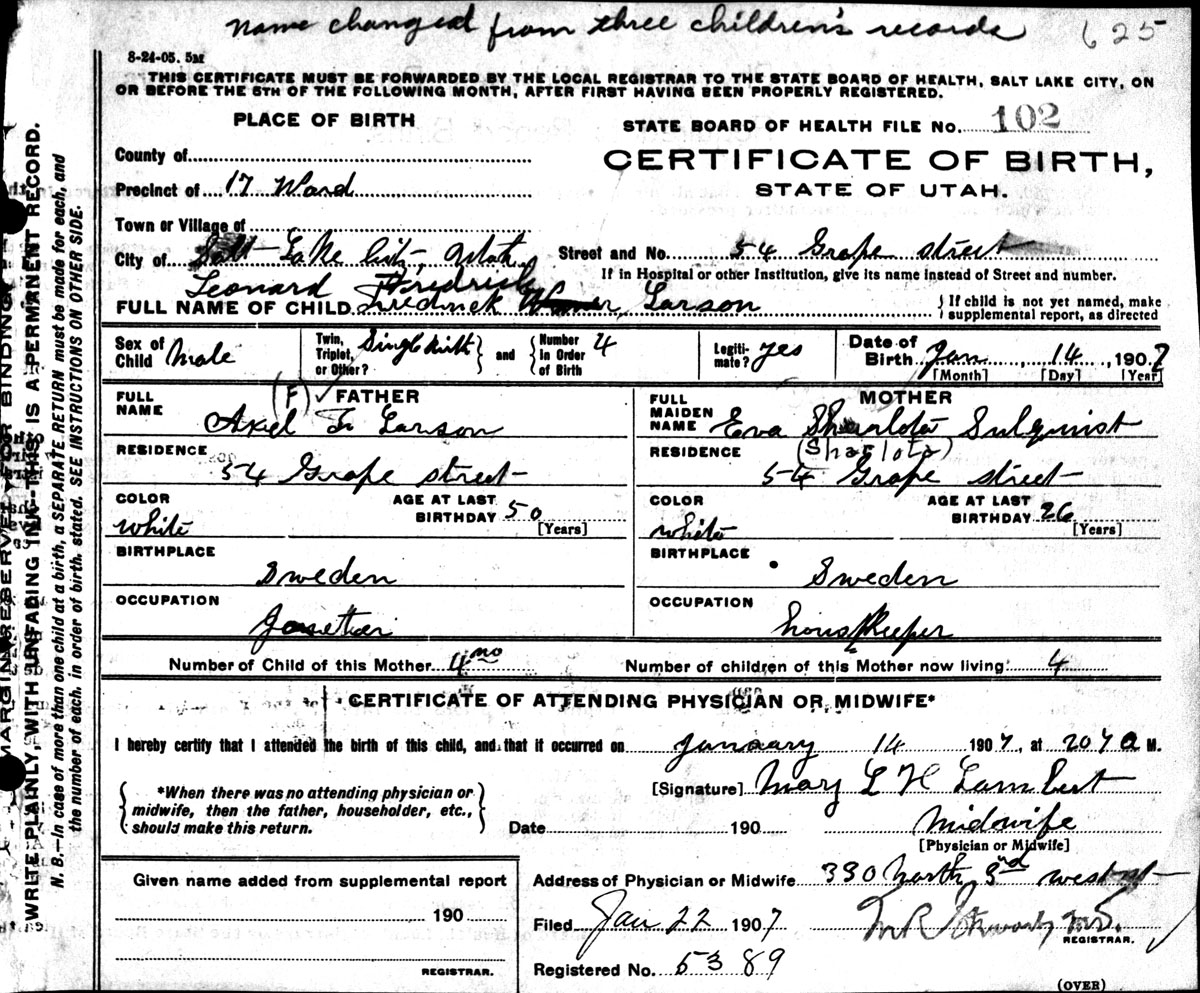 name changed from three children's records 625
8-24-05. 5M
THIS CERTIFICATE MUST BE FORWARDED BY THE LOCAL REGISTRAR TO THE STATE BOARD OF HEALTH, SALT LAKE CITY, ON
OR BEFORE THE 5TH OF THE FOLLOWING MONTH, AFTER FIRST HAVING BEEN PROPERLY REGISTERED.
PLACE OF BIRTH
STATE BOARD OF HEALTH FILE No. 102
County of
CERTIFICATE OF BIRTH,
Precinct of 17 Ward
STATE OF UTAH.
Town or Village of
City of Salt Lake City, Utah Street and No. 54 Grape street
If in Hospital or other Institution, give its name instead of Street and number.
Leonard Fredrick
FULL NAME OF CHILD Fredrick Larson
{If child is not yet named, make
supplemental report, as directed
Sex of Child Male
Twin, Triplet, or Other? Single birth } and { Number in Order of Birth 4
Legitimate? yes
Date of Birth Jan 14, 1907
[Month] [Day] [Year]
(F) ✓ FATHER
FULL NAME Axel F. Larson
RESIDENCE 54 Grape street
COLOR white
AGE AT LAST BIRTHDAY 50 [Years]
BIRTHPLACE Sweden
OCCUPATION
MOTHER
FULL MAIDEN NAME Eva Sharlota Sulquist
(Sharlota)
RESIDENCE 54 Grape street
COLOR white
AGE AT LAST BIRTHDAY 26 [Years]
BIRTHPLACE Sweden
OCCUPATION housKeeper
Number of Child of this Mother 4 no Number of children of this Mother now living 4
CERTIFICATE OF ATTENDING PHYSICIAN OR MIDWIFE*
I hereby certify that I attended the birth of this child, and that it occurred on January 14 1907, at M.
{ *When there was no attending physician or
midwife, then the father, householder, etc.,
should make this return. }
[Signature] Mary L H Lambert
Date 190 Midwife
[Physician or Midwife]
Given name added from supplemental report
190
REGISTRAR.
Address of Physician or Midwife 330 North 3rd west st
Filed Jan 22 1907
REGISTRAR.
Registered No. 5389
(OVER)
MARGIN RESERVED FOR BINDING
WRITE PLAINLY, WITH UNFADING INK—THIS IS A PERMANENT RECORD.
N. B.—In case of more than one child at a birth, a SEPARATE RETURN must be made for each, and
the number of each, in order of birth, stated. SEE INSTRUCTIONS ON OTHER SIDE.